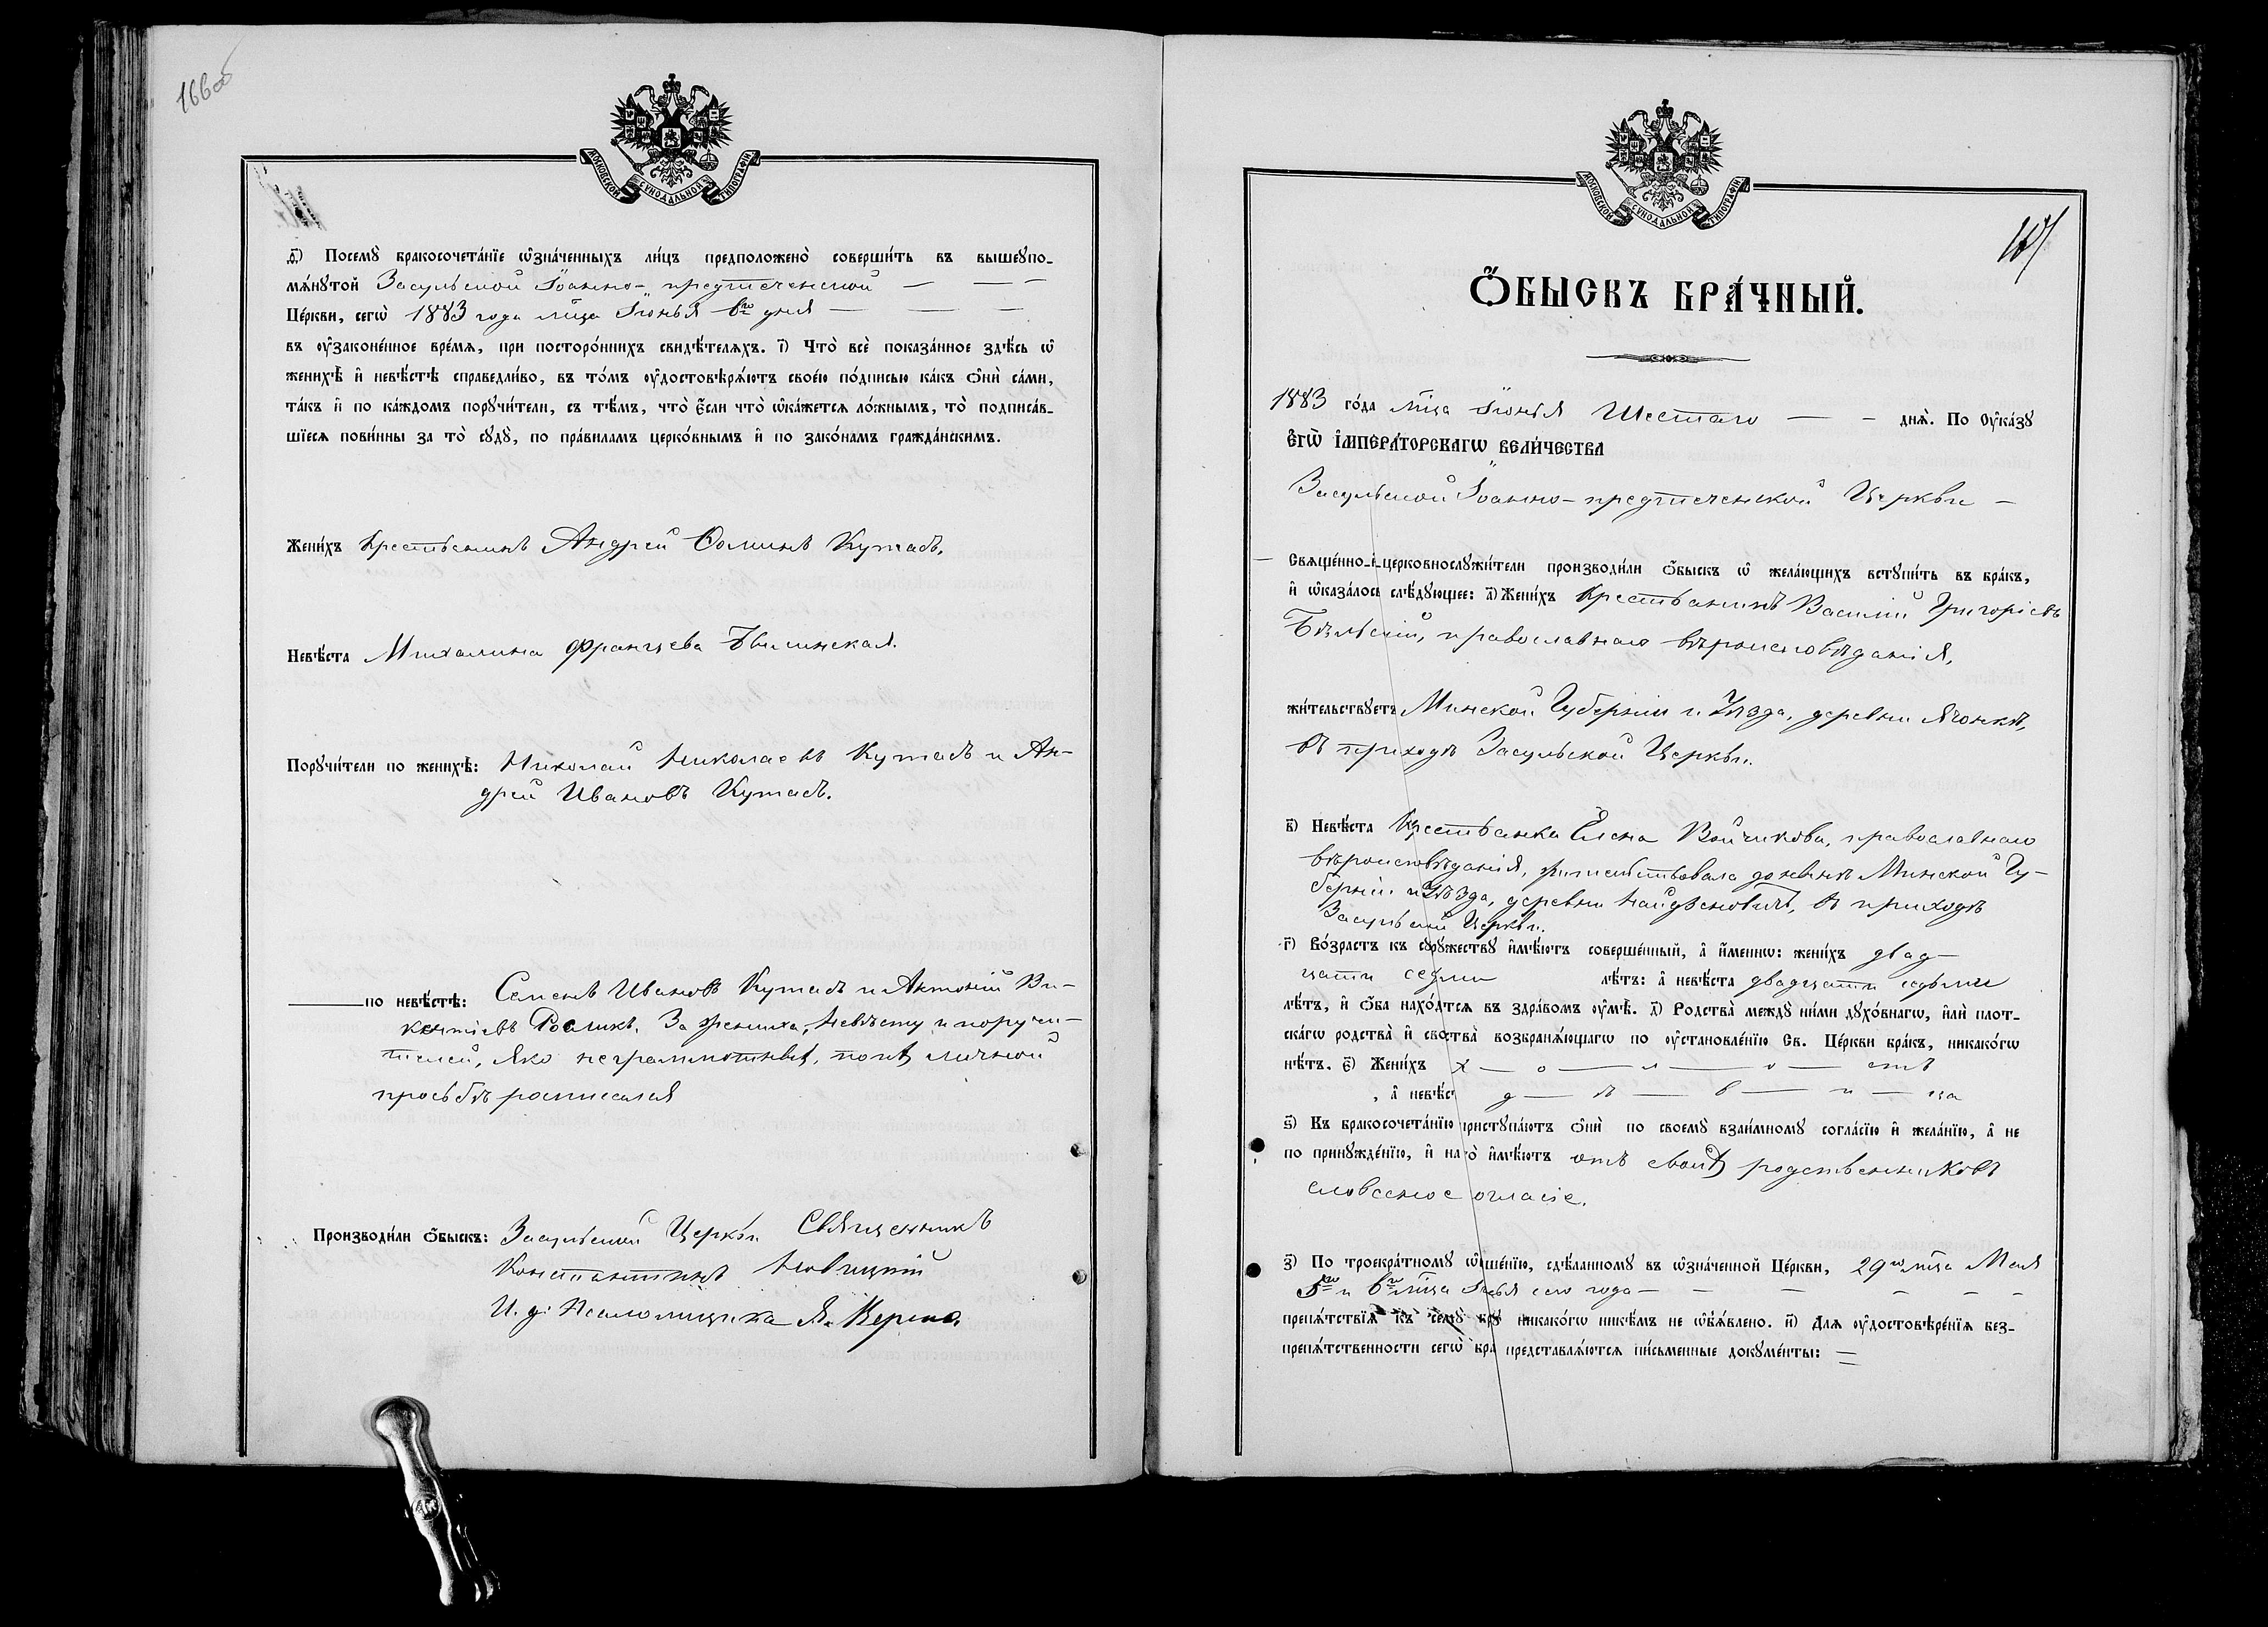 166об
МОСКОВСКОЙ СУНОДАЛЬНОЙ ТИПОГРАФІИ.
ѳ҃) Посемꙋ̀ бракосочета́нїе ѡ҆зна́ченныхъ ли́цъ предположено̀ соверши́ть въ вышеꙋпо-
мѧ́нꙋтой Засульской Іоанно-предтеченской — — —
Це́ркви, сегѡ̀ 1883 года м͠ца Іюнья 6го дня — — —
въ ᲂу҆законе́нное вре́мѧ, при посторо́ннихъ свидѣ́телѧхъ. і҃) Что̀ всѐ показа́нное здѣ́сь ѡ҆
женихѣ̀ и҆ невѣ́стѣ справедли́во, въ то́мъ ᲂу҆достовѣрѧ́ютъ свое́ю по́дписью ка́къ ѻ҆нѝ са́ми,
та́къ и҆ по ка́ждомъ порꙋчи́тели, съ тѣ́мъ, что̀ є҆́сли что̀ ѡ҆ка́жетсѧ ло́жнымъ, то̀ подписа́в-
шїесѧ пови́нны за то̀ сꙋдꙋ̀, по пра́виламъ церко́внымъ и҆ по зако́намъ гражда́нскимъ.
Жени́хъ Крестьянинъ Андрей Ѳоминъ Куташъ.
Невѣ́ста Михалина Францева Былинская.
Порꙋчи́тели по женихѣ̀: Николай Николаевъ Куташъ и Ан-
дрей Ивановъ Куташъ.
по невѣ́стѣ: Семенъ Ивановъ Куташъ и Антоній Ви-
кентіевъ Рослик. За жениха, невѣсту и поручи-
телей, яко неграмотныхъ, по ихъ личной
просьбѣ росписался
Производи́ли ѻ҆́быскъ: Засульской Церкви Священникъ
Константинъ Новицкій
И. д. Псаломщика Я. Керно
167
МОСКОВСКОЙ СУНОДАЛЬНОЙ ТИПОГРАФІИ.
Ѻ҆́БЫСКЪ БРА́ЧНЫЙ.
1883 го́да м͠ца Іюнья Шестаго — — днѧ̀. По Оу҆ка́зꙋ
Є҆ГѠ̀ І҆МПЕРА́ТОРСКАГѠ ВЕЛИ́ЧЕСТВА
Засульской Іоанно-предтеченской Церкви —
Свѧще́нно-и҆-церковнослꙋжи́тели производи́ли ѻ҆́быскъ ѡ҆ жела́ющихъ встꙋпи́ть въ бра́къ,
и҆ ѡ҆каза́лось слѣ́дꙋющее: а҃) Жени́хъ Крестьянинъ Василій Григоріевъ
Бѣльскій, православнаго вѣроисповѣданія,
жи́тельствꙋетъ Минской Губерніи и Уѣзда, деревни Ячонкѣ,
въ приходѣ Засульской Церкви.
в҃) Невѣ́ста Крестьянка Елена Войчикова, православнаго
вѣроисповѣданія, жительствовала донынѣ Минской Гу-
берніи и Уѣзда, деревни Найденовичѣ, въ приходѣ
Засульской Церкви.
г҃) Во́зрастъ къ сꙋпрꙋ́жествꙋ и҆мѣ́ютъ соверше́нный, а҆ и҆́меннѡ: жени́хъ двад-
цати седми лѣ́тъ: а҆ невѣ́ста двадцати седьми
лѣ́тъ, и҆ ѻ҆́ба нахо́дѧтсѧ въ здра́вомъ ᲂу҆мѣ̀. д҃) Родства̀ междꙋ̀ ни́ми дꙋхо́внагѡ, и҆лѝ плот-
ска́гѡ родства̀ и҆ свойства̀ возбранѧ́ющагѡ по ᲂу҆становле́нїю Св. Це́ркви бра́къ, никако́гѡ
нѣ́тъ. є҃) Жени́хъ х — о — л — о — стъ
, а҆ невѣ́с д — ѣ — в — и — ца
ѕ҃) Къ бракосочета́нїю пристꙋпа́ютъ ѻ҆нѝ по своемꙋ̀ взаи́мномꙋ согла́сїю и҆ жела́нїю, а҆ не
по принꙋжде́нїю, и҆ на то̀ и҆мѣ́ютъ отъ своихъ родственниковъ
словесное согласіе.
з҃) По троекра́тномꙋ ѡ҆глаше́нїю, сдѣ́ланномꙋ въ ѡ҆зна́ченной Це́ркви, 29го м͠ца Мая
5го и 6го м͠ца Іюнья сего года — — — — — —
препѧ́тствїѧ къ семꙋ̀ бра́кꙋ никако́гѡ никѣ́мъ не ѡ҆б̾ѧ́влено. и҃) Длѧ ᲂу҆достовѣре́нїѧ без-
препѧ́тственности сегѡ̀ бра́ка представлѧ́ютсѧ пи́сьменные докꙋме́нты: =